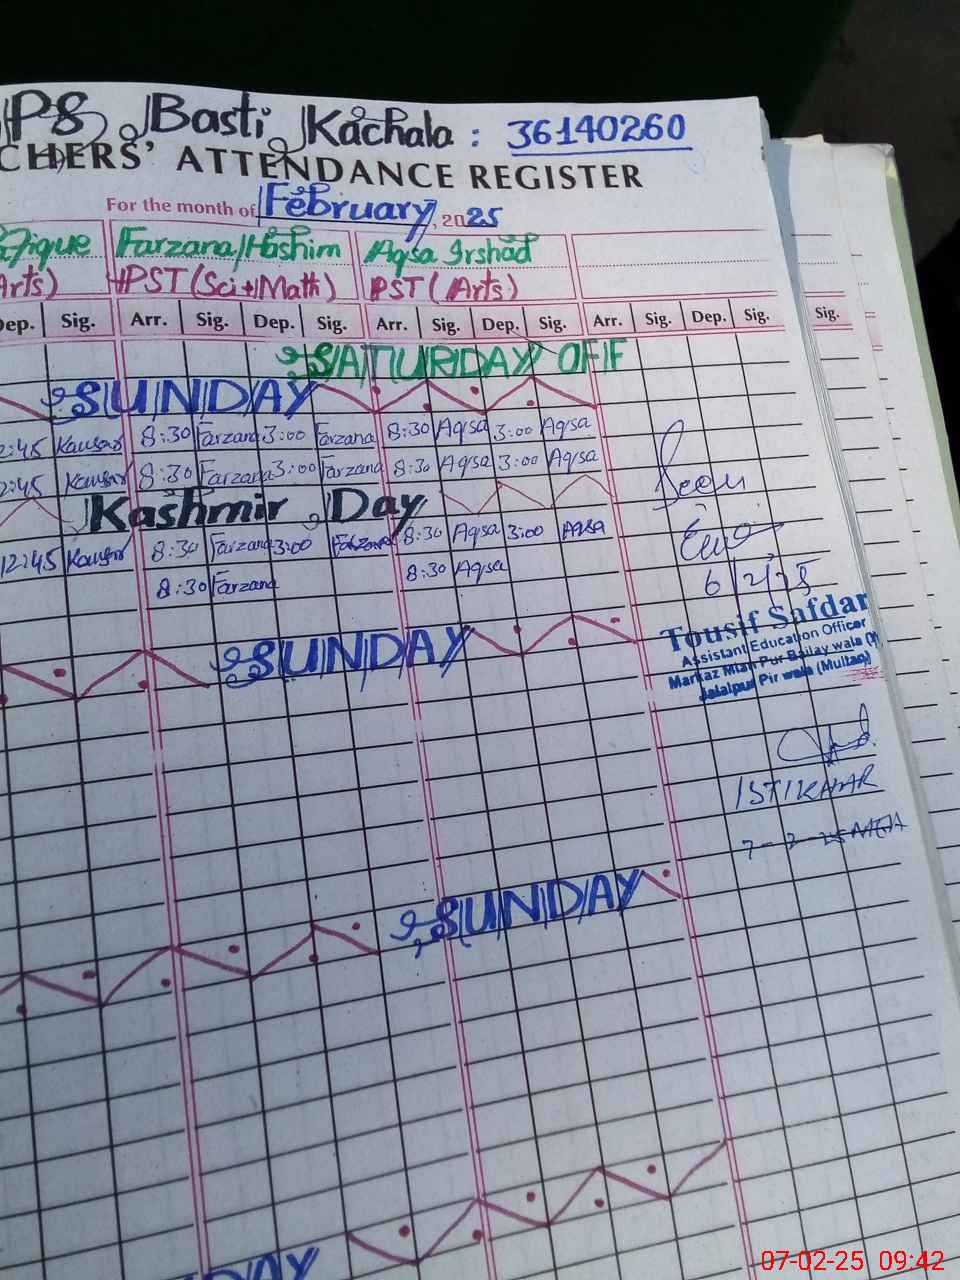 PS Basti Kachala : 36140260
CHERS' ATTENDANCE REGISTER
For the month of February, 2025
Farzana Hashim Aqsa Irshad
Arts) PST (Sci+Math) PST (Arts)
Dep. Sig. Arr. Sig. Dep. Sig. Arr. Sig. Dep. Sig. Arr. Sig. Dep. Sig. Sig.
SATURDAY OFF
SUNDAY
2:45 Kausar 8:30 Farzana 3:00 Farzana 8:30 Aqsa 3:00 Aqsa
2:45 Kausar 8:30 Farzana 3:00 Farzana 8:30 Aqsa 3:00 Aqsa
Kashmir Day
12:45 Kausar 8:30 Farzana 3:00 Farzana 8:30 Aqsa 3:00 Aqsa
8:30 Farzana 8:30 Aqsa
Seen
6/2/25
Tousif Safdar
Assistant Education Officer
Markaz Mian Pur Bailay wala
Jalalpur Pir wala (Multan)
SUNDAY
ISTIKHAR
7-2-25 MEA
SUNDAY
DAY
07-02-25 09:42